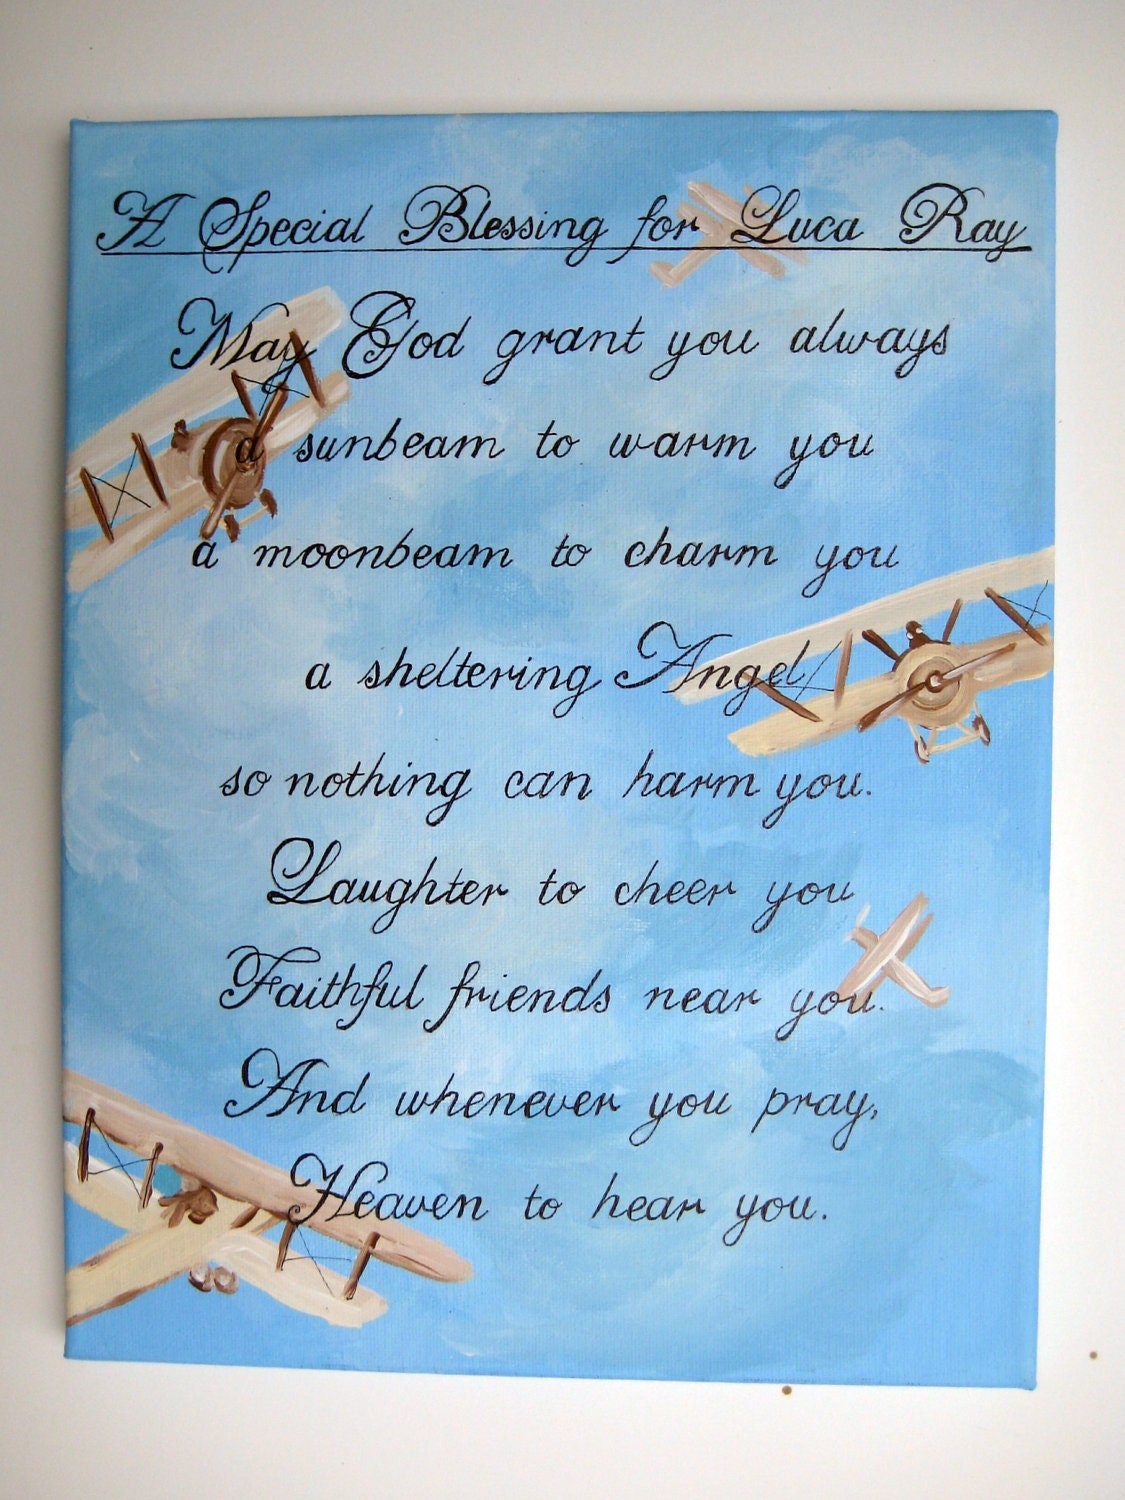 A Special Blessing for Luca Ray
May God grant you always
a sunbeam to warm you
a moonbeam to charm you
a sheltering Angel
so nothing can harm you.
Laughter to cheer you
Faithful friends near you.
And whenever you pray,
Heaven to hear you.